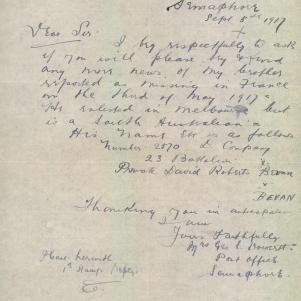 Semaphore
Sept 5th 1917
Dear Sir.
I beg respectfully to ask
if you will please try & send
any more news of my brother
reported as missing in France
on the third of May 1917 -
He enlisted in Melbourne but
is a South Australian
His name etc is as follows
Number 2070 D Company
23 Battalion
Private David Roberts Bevan
BEVAN
Thanking you in anticipation
I am
Yours Faithfully
Mrs Geo E
Post office
Semaphore